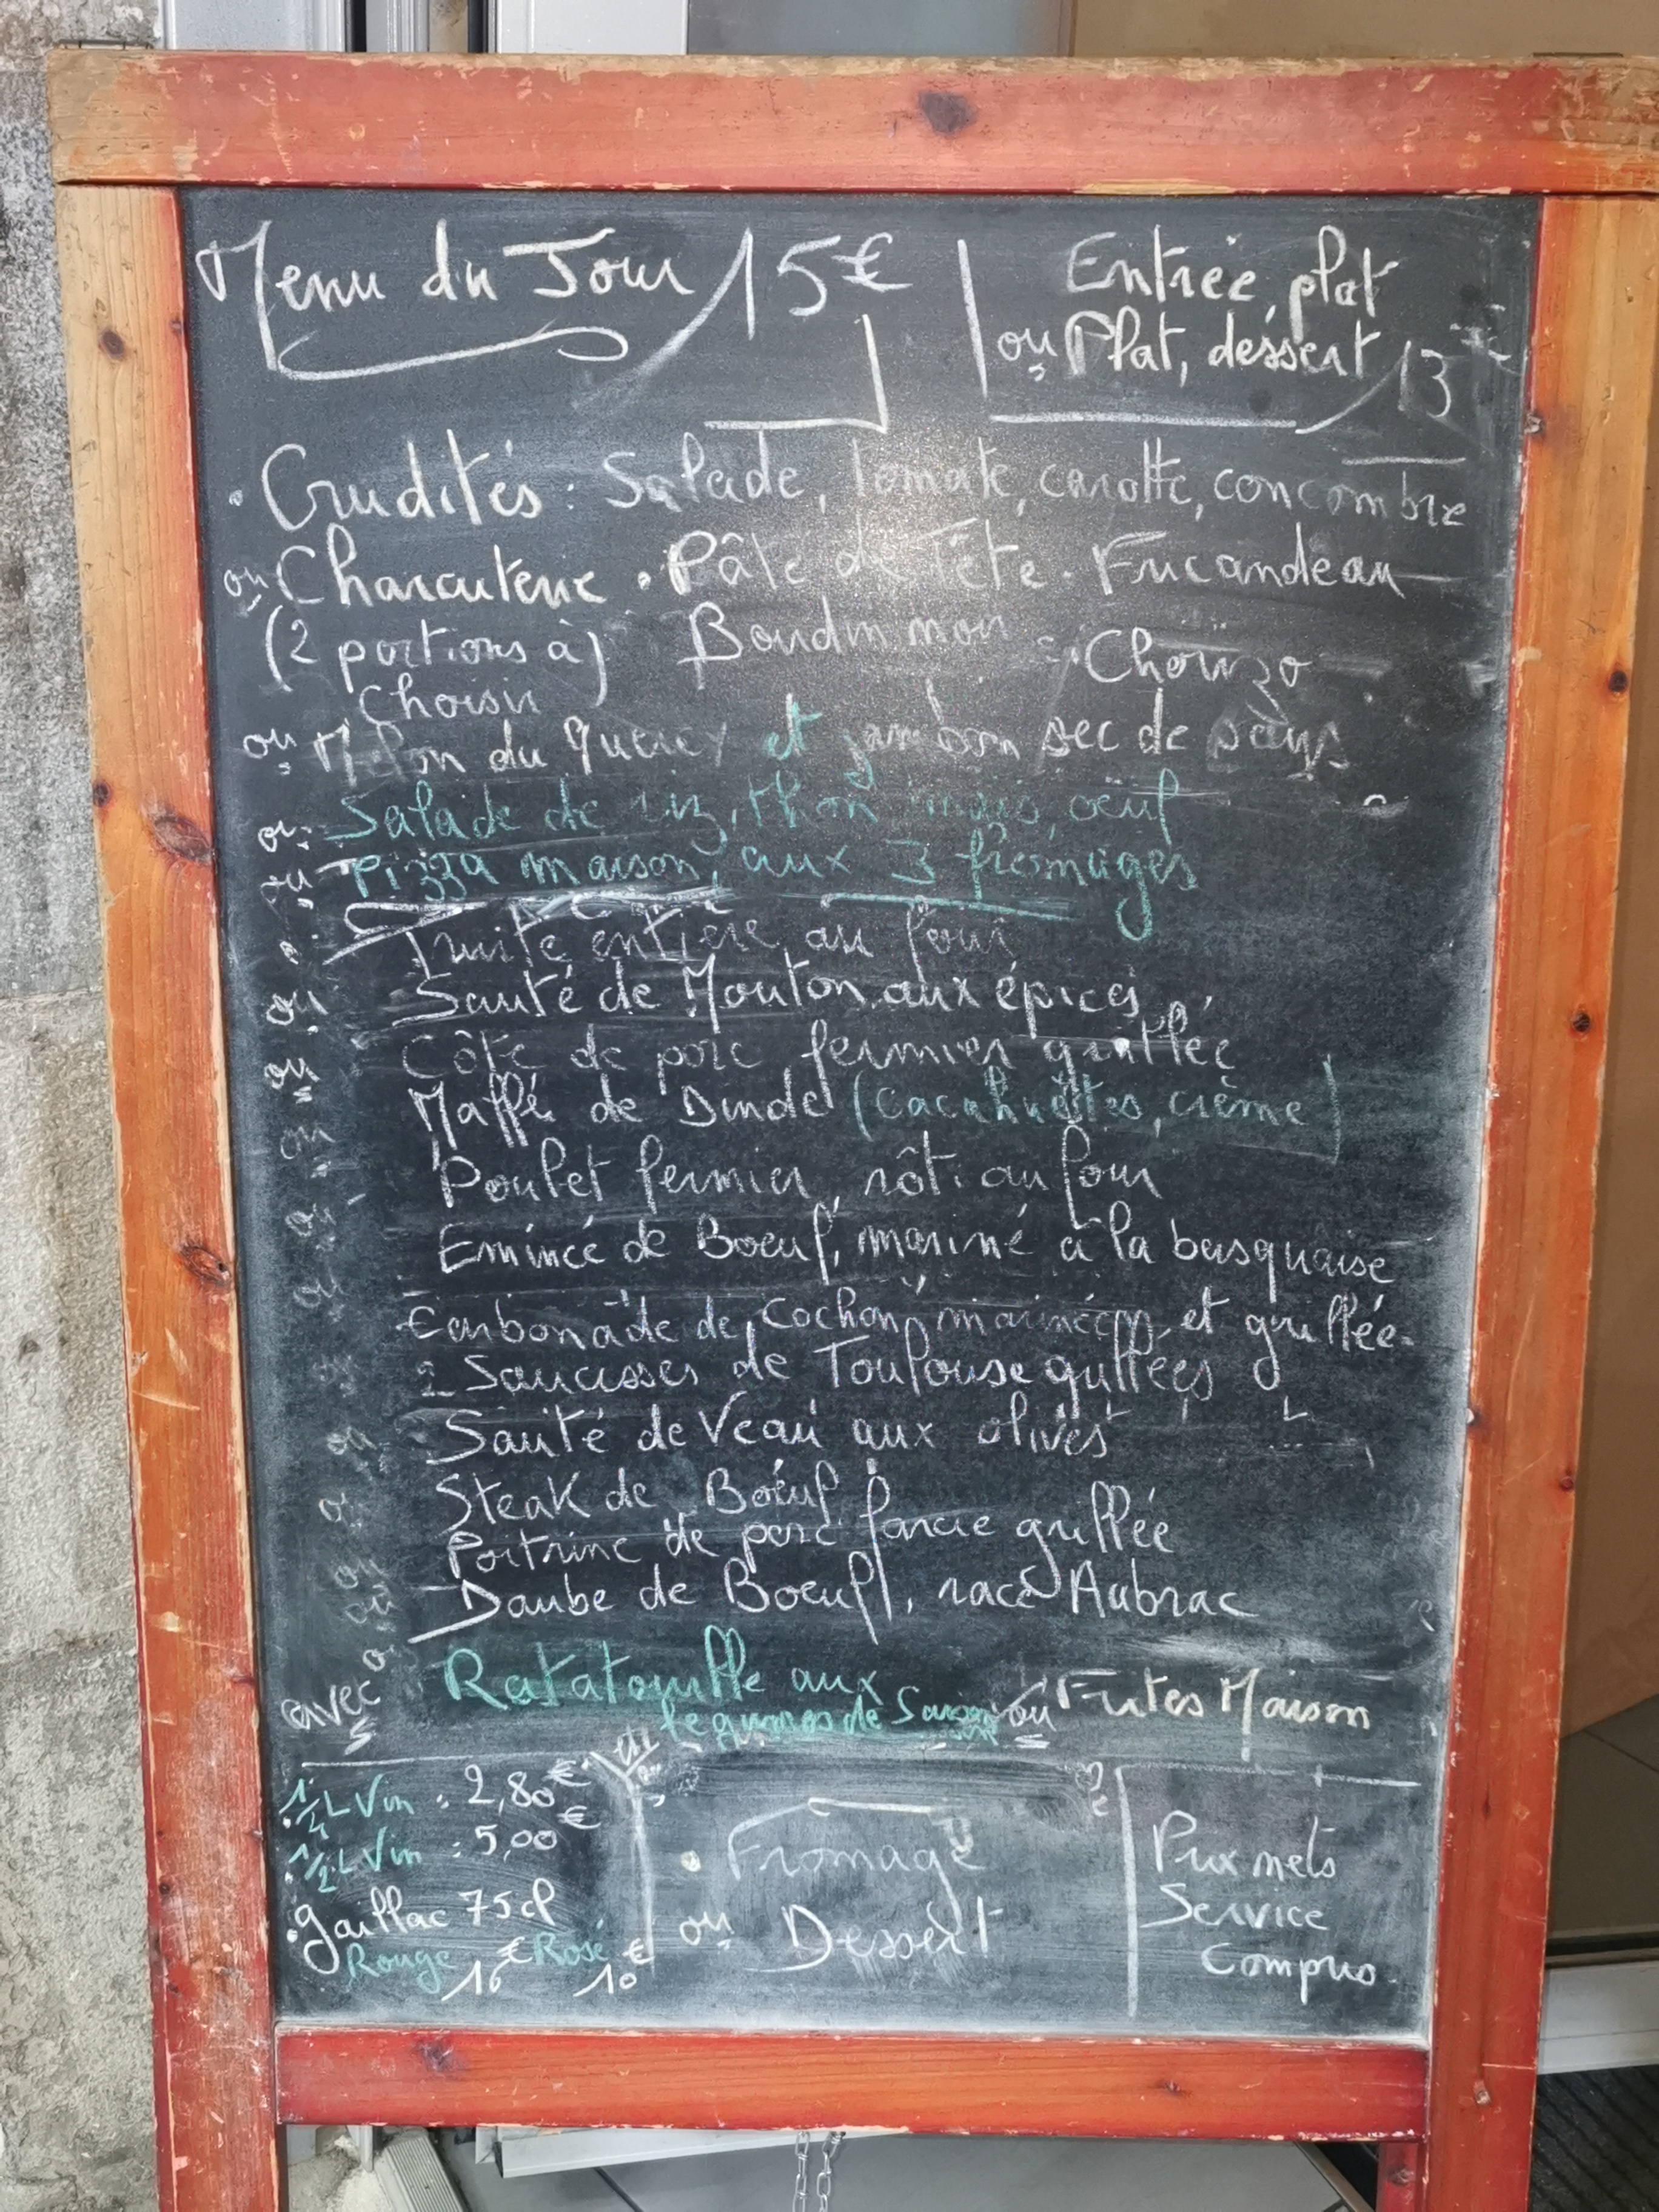 Menu du Jour 15€
Entrée, plat
ou Plat, déssert 13€
. Crudités : Salade, Tomate, carotte, concombre
ou Charcuterie . Pâté de Tête . Fricandeau
(2 portions à) Boudin noir . Chorizo
Choisir
ou Melon du Quercy et jambon sec de pays
ou Salade de riz, thon maïs, oeuf
ou Pizza maison, aux 3 fromages
. Truite entière au four
ou Sauté de Mouton aux épices
ou Côte de porc fermier grillée
ou Maffé de Dinde (Cacahuètes, crème)
ou Poulet fermier, rôti au four
ou Emincé de Boeuf, mariné à la basquaise
Carbonade de Cochon, marinée et grillée
ou 2 Saucisses de Toulouse grillées
ou Sauté de Veau aux olives
ou Steak de Boeuf
ou Poitrine de porc farcie grillée
ou Daube de Boeuf, race Aubrac
avec Ratatouille aux
légumes de Saison ou Frites Maison
1/4 L Vin : 2,80€
1/2 L Vin : 5,00€
. Gaillac 75cl
Rouge 10€ Rosé 10€
. Fromage
ou Dessert
Prix nets
Service
Compris